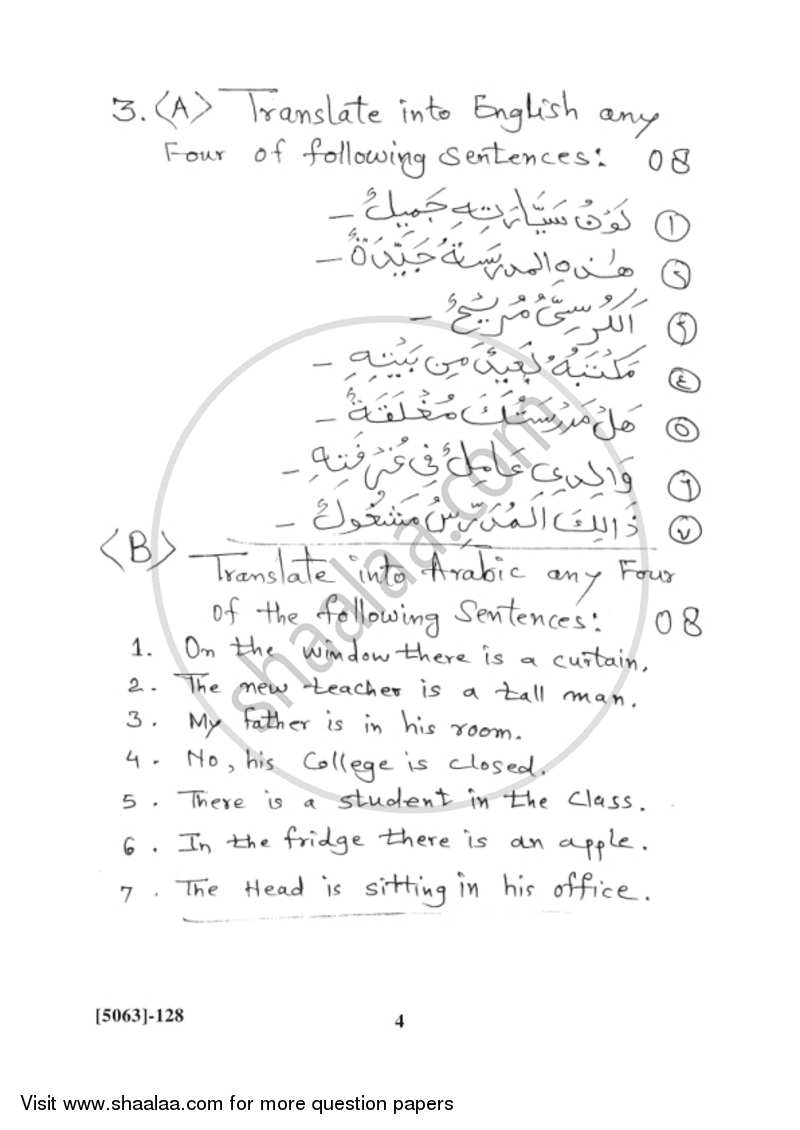 3. <A> Translate into English any
Four of following Sentences: 08
١ لَوْنُ سَيَّارَتِهِ جَمِيلٌ –
٢ هٰذِهِ المَدرَسَةُ جَيِّدَةٌ –
٣ اَلكُرسِيُّ مُرِيْحٌ –
٤ مَكْتَبَهُ بَعِيدٌ مِن بَيْتِهِ –
٥ هَلْ مَدْرَسَتُكَ مُغْلَقَةٌ –
٦ وَالِدِي عَامِلٌ فِي غُرْفَتِهِ –
٧ ذَالِكَ الْمُدَرِّسُ مَشْغُولٌ –
<B> Translate into Arabic any Four
of the following Sentences: 08
1. On the window there is a curtain.
2. The new teacher is a tall man.
3. My father is in his room.
4. No, his College is closed.
5. There is a student in the class.
6. In the fridge there is an apple.
7. The Head is sitting in his office.
shaalaa.com
[5063]-128
4
Visit www.shaalaa.com for more question papers